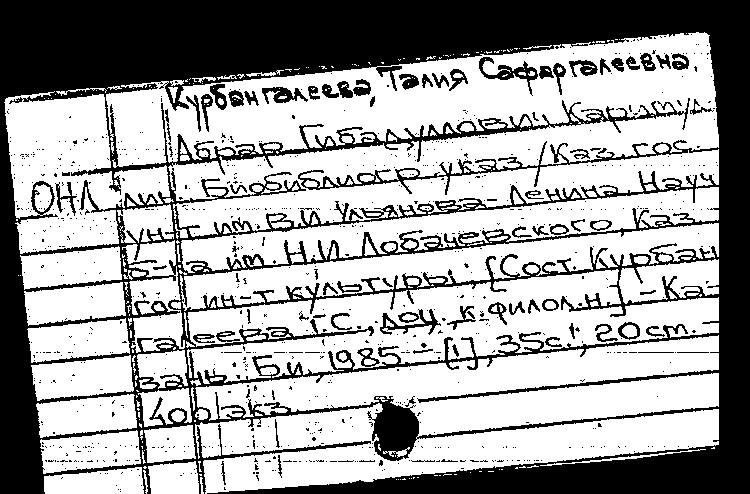 Курбангалеева, Талия Сафаргалеевна.
Абрар Гибадуллович Каримул-
ОНЛ лин: Биобиблиогр. указ. /Каз. гос.
ун-т им. В.И. Ульянова-Ленина. Науч.
б-ка им. Н.И. Лобачевского, Каз.
гос. ин-т культуры; [Сост. Курбан
галеева Т.С., доц., к.филол.н.]. - Ка-
зань: Б.и., 1985. - [1], 35с.; 20 cm. -
400 экз.